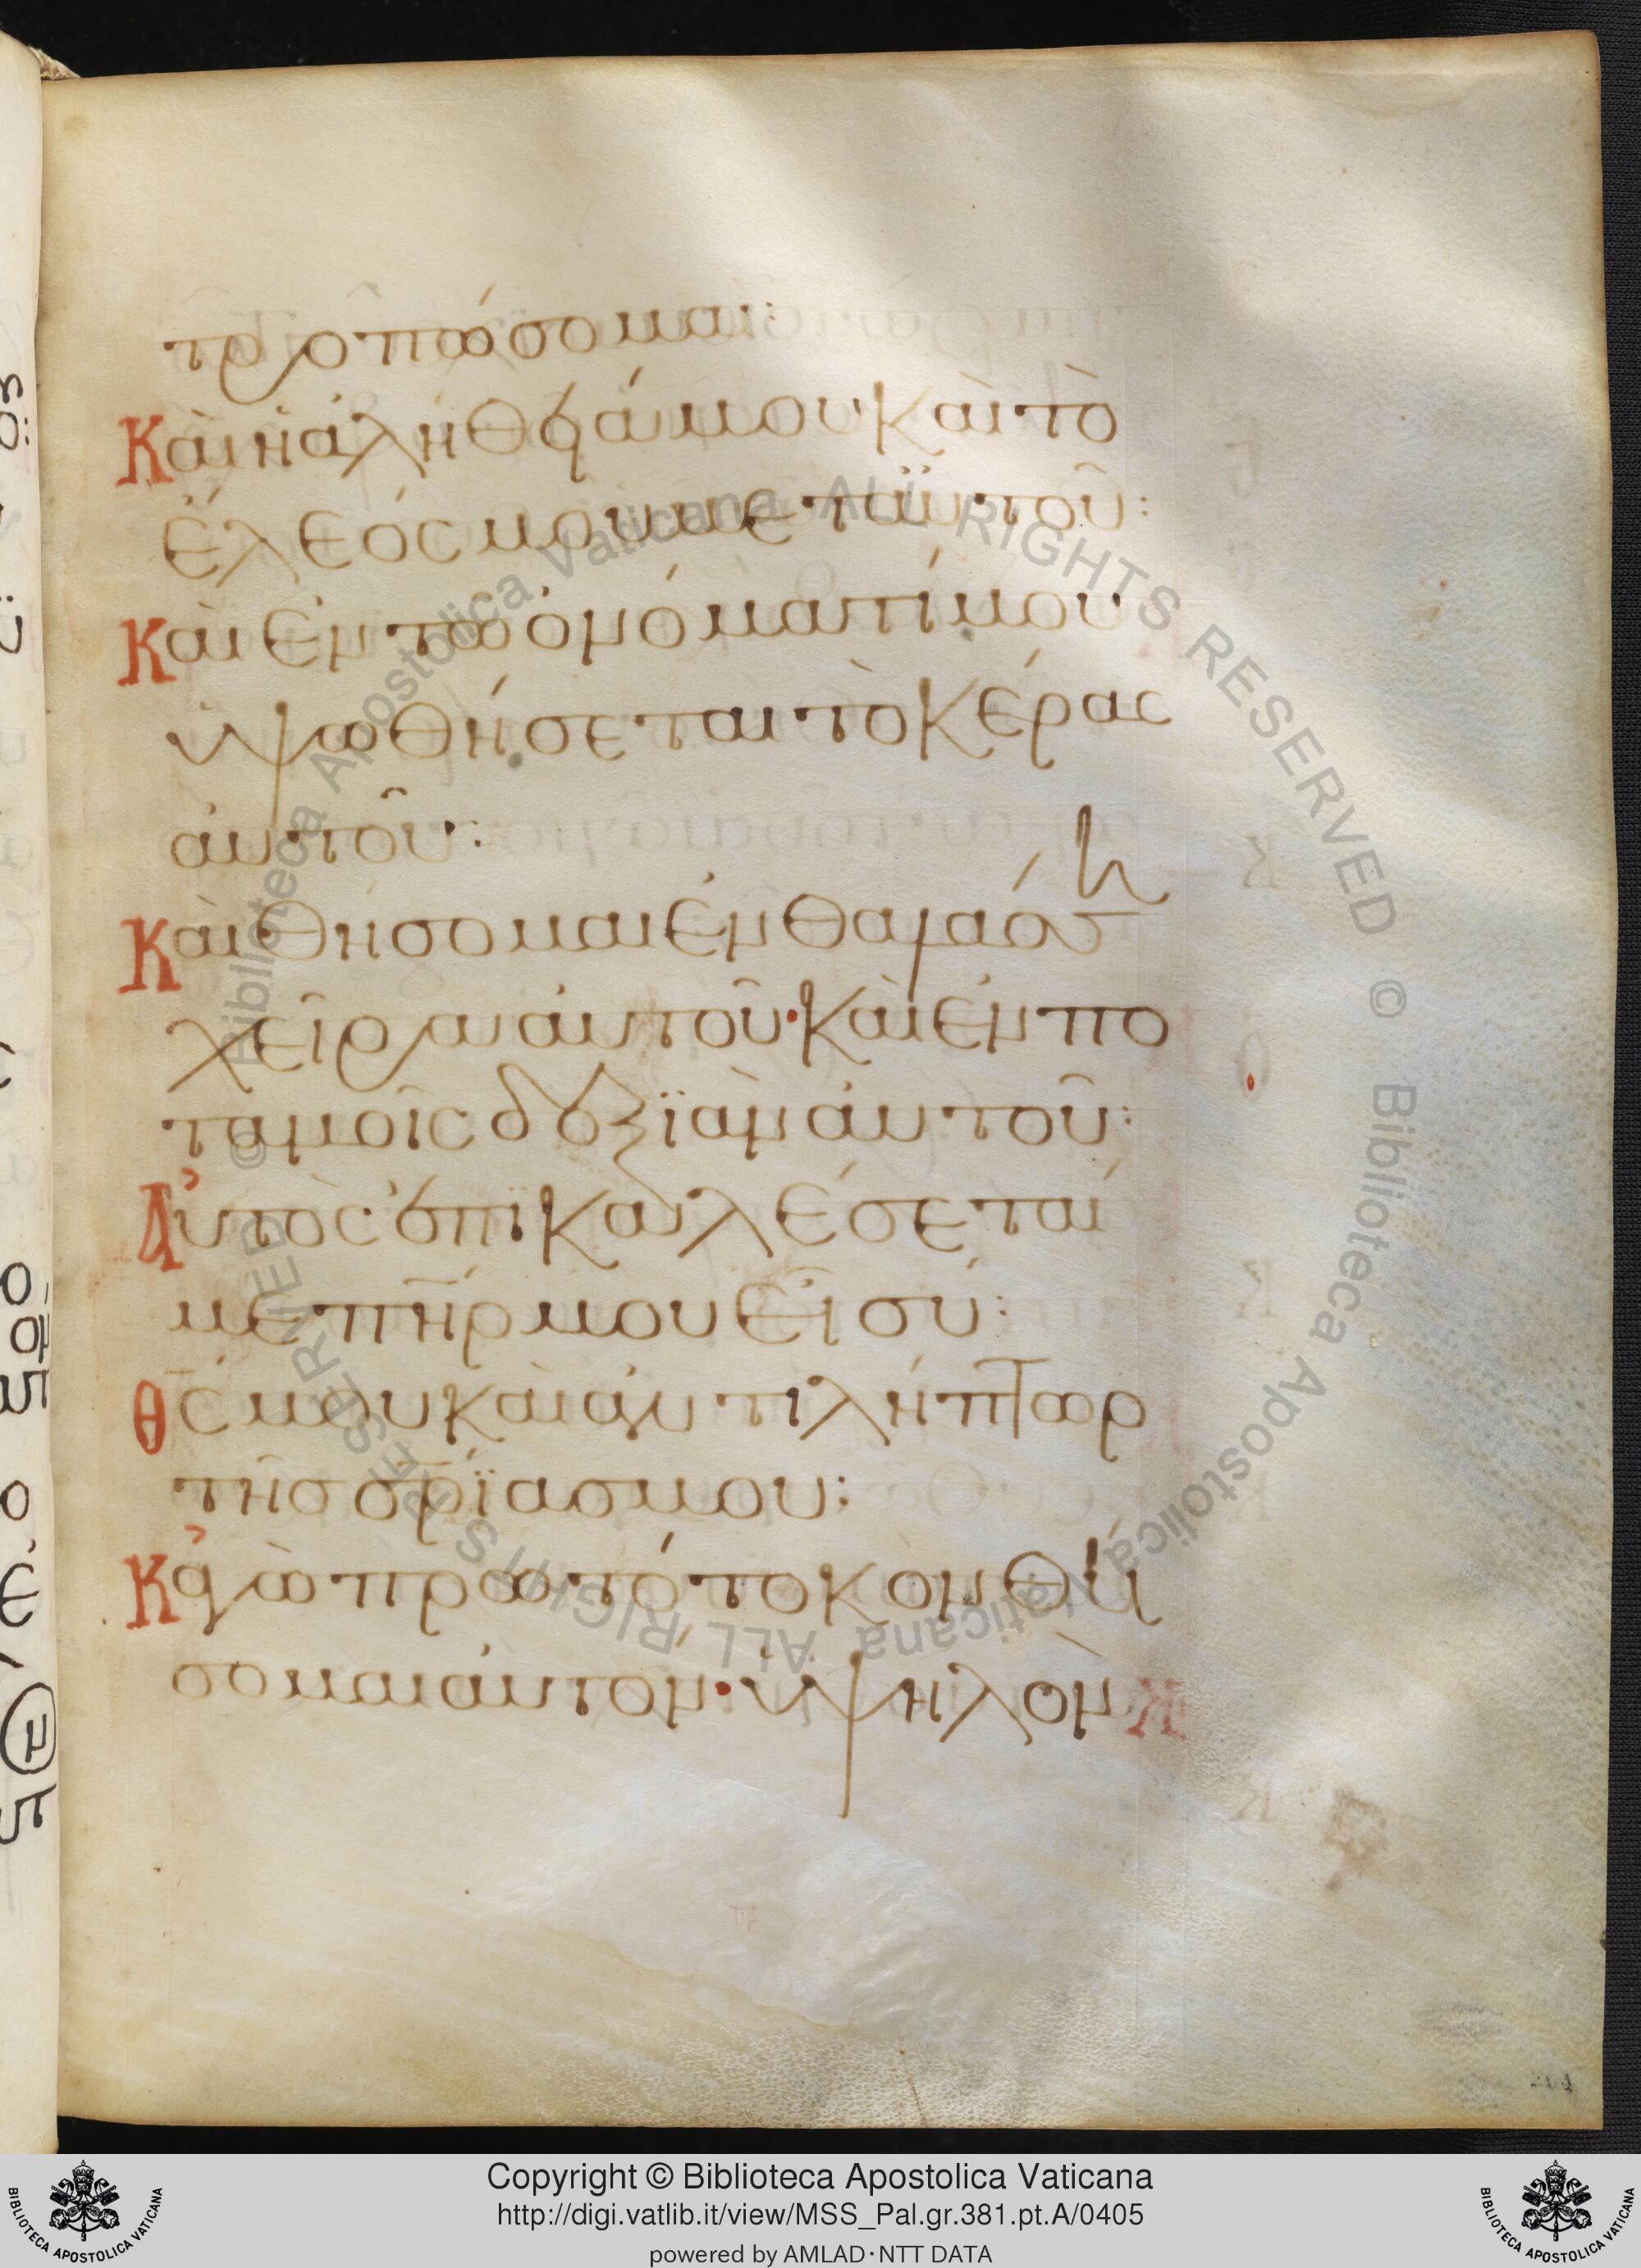 τροπώσομαι:
Καὶ ἡ ἀλήθειά μου καὶ τὸ
ἔλεός μου μετ αὐτοῦ:
Καὶ ἐν τῶ ὀνόματί μου
ὑψωθήσεται τὸ κέρας
ἀυτοῦ:
Καὶ θήσομαι ἐν θαλάσση
χεῖραν ἀυτοῦ· καὶ ἐν πο
ταμοῖς δεξϊὰν ἀυτοῦ:
Ἀυτὸς ἐπϊκαλέσεταί
με πη̄ρ μου εἶ σύ:
Θς̄ μου καὶ ἀντιλήπτωρ
τῆς σρ̄ϊασ μου:
Κἀγὼ πρωτότοκον θή
σομαι ἀυτόν· ὑψηλὸν
Copyright © Biblioteca Apostolica Vaticana
http://digi.vatlib.it/view/MSS_Pal.gr.381.pt.A/0405
powered by AMLAD·NTT DATA
BIBLIOTECA APOSTOLICA VATICANA
BIBLIOTECA APOSTOLICA VATICANA